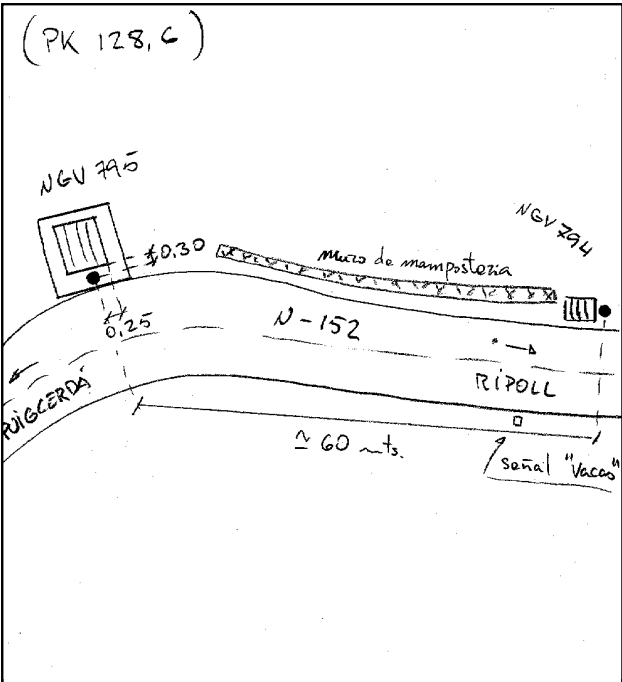 (PK 128,6)
NGV 795
NGV 794
0.30
muro de mampostería
0,25
N-152
PUIGCERDÁ
RIPOLL
≃ 60 mts.
señal "Vacas"